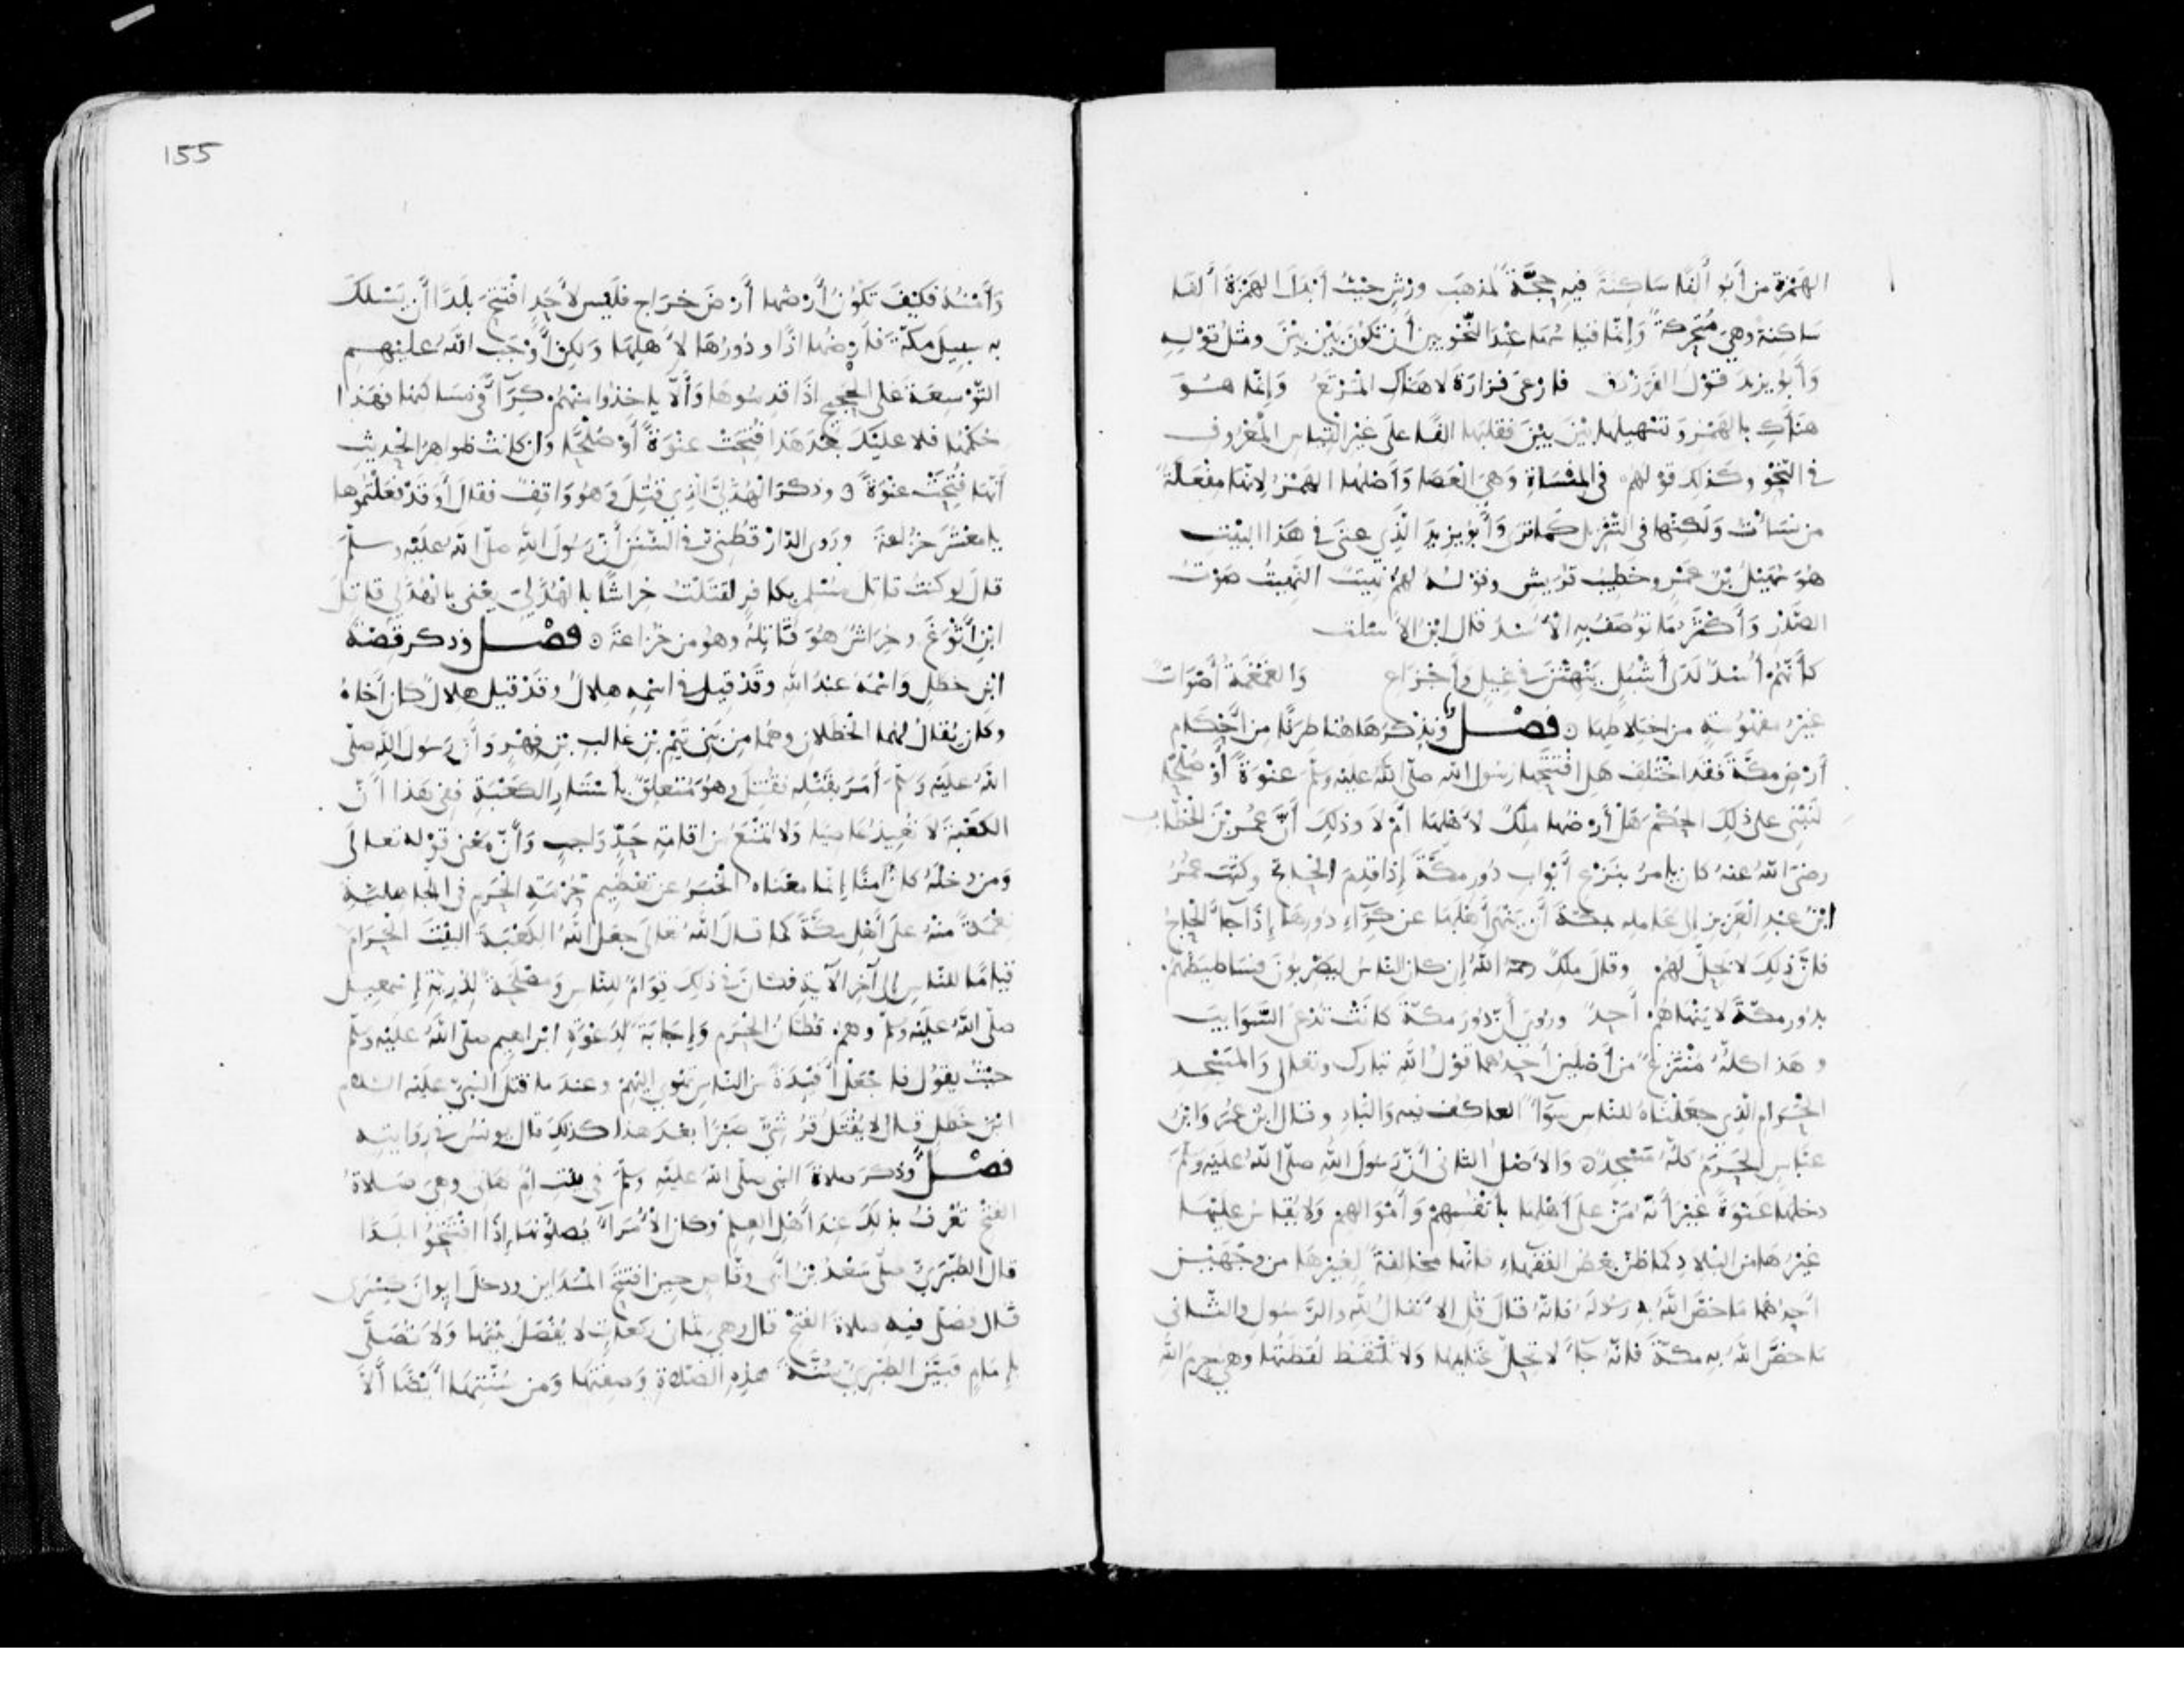 الهَمْزة من أبو ألفًا سَاكِنَةً فيهِ حُجَّةٌ لمذهَب ورْشٍ حيثُ أبدَلَ الهمزةَ ألفًا
سَاكِنة وهي مُتحركةٌ وَإِنّما قياسُهَا عِندَ النَّحويين أَن تكُونَ بَيْن بَيْن ومثلُ قوْلِهِ
وَأَبُو يزيدَ قوْلُ الفَرزدَق فارعَىْ فزارَة لا هَنَاكِ المرْتعُ وَإنّما هُوَ
هنأكِ بالهَمْزِ وتسْهيلهَا بَيْنَ بَيْنَ فقلبَها الفًا على غَيْر القياسِ المعْرُوف
في النَّحْو وكَذلِكَ قولهم في المِنْسَاةِ وَهيَ العَصَا وَأَصْلها الهَمْزُ لانّها مِفْعَلةٌ
من نسَأْتُ وَلكنّها في التّنزيل كما ترَى وَأبُو يزيدَ الّذي عنَى في هَذا البيْتِ
هُوَ سُهَيْلُ بْنُ عَمْرٍو خطيبُ قريش وقولُهُ لهمْ نَهيتٌ النّهيتُ صَوْتُ
الصَّدْرِ وَأكثرُ مَا تُوصَفُ بهِ الأُسْدُ قال ابْنُ الأسلت
كأنّهُم أُسْدٌ لدَى أشْبُلٍ ينْهِتْنَ في غِيلٍ وأجْزَاعِ وَالغَمْغَمَةُ أَصْوَاتٌ
غيْرُ مفهُومَةٍ من اختلاطِهَا فصْلٌ ونذكرُ هَاهُنا طرَفًا مِن أَحْكامِ
أرْضِ مكّةَ فقد اختُلِف هَل افتتَحَها رَسُول الله صلّى اللهُ عليْه وسلّمَ عنْوَةً أوْ صُلْحًا
لنبْنيَ على ذلِكَ الحكْمَ هَلْ أرْضُها مِلْكٌ لأَهْلِهَا أمْ لا وذلِكَ أنَّ عُمَر بْنَ الخطّاب
رضيَ اللهُ عنهُ كان يامُرُ بنَزْعِ أبْوابِ دُورِ مكّةَ إذا قدِمَ الحاجّ وكتَبَ عُمَرُ
ابْنُ عبدِ العَزيز إلى عَامِلِهِ بمكّةَ أنْ يَنْهَى أهْلَهَا عن كرَآءِ دُورِهَا إذا جآءَ الحاجُّ
فإنّ ذلكَ لا يحِلّ لهُم وقال مَلِكٌ رحمهُ اللهُ إن كان النّاسُ ليَضْرِبُونَ فسَاطيطَهُمْ
بدُورِ مكّةَ لا ينْهَاهُم أحَدٌ ورُويَ أنّ دُورَ مكّة كانَتْ تُدْعَى السَّوَايِبَ
وهَذا كلّهُ مُنْتَزعٌ من أصْلَيْن أحدهما قوْلُ اللهِ تبَارك وتعالى وَالمسْجدِ
الحَرامِ الّذي جعَلْنَاهُ للنّاس سَوآءً العاكف فيه وَالبَادِ وقال ابْنُ عُمَرَ وَابْنُ
عبّاسٍ الحَرَمُ كلّهُ مَسْجدٌ وَالأَصْلُ الثاني أنّ رَسُولَ اللهِ صلّى اللهُ عليْهِ وسلّمَ
دخلهَا عَنْوَةً غيْرَ أنّهُ مَنَّ على أَهْلها بأَنفُسِهِمْ وَأَمْوَالهِم وَلا يُقاسُ عليْهَا
غيْرُها من البلادِ كما ظنّ بعْضُ الفقهاءِ فانّها مخالفةٌ لغيْرِهَا من وجْهَيْن
أحدُهما مَا خصَّ اللهُ به رسُولهُ فإنّهُ قالَ قُل الأنفالُ للهِ والرَّسُولِ والثّاني
مَا خصّ اللهُ به مكّةَ فإنّهُ جآءَ لا تحِلّ غنايمها وَلا تُلْتقَطُ لُقَطَتُها وهي حرَمُ اللهِ
155
وَأَمْنُهُ فكيْفَ تكُونُ أرْضُها أرْضَ خرَاج فليْس لأَحَدٍ افْتتحَ بلدًا أن يَسْلكَ
به سبيلَ مكّةَ فأرضُها اذًا ودُورُهَا لأَهلِهَا وَلكن أوْجَبَ اللهُ عليْهِم
التَّوْسِعَةَ على الحجيجِ اذَا قدِمُوهَا وَألّا يَاخذُوا منهُمْ كِرَآءً في مسَاكنها فهَذا
حُكمُها فلا عليْكَ بعْدَ هَذا فُتِحَتْ عنْوَةً أوْ صُلْحًا وَان كانت ظواهرُ الحديثِ
أنّهَا فُتِحَتْ عنوَةً وذكرَ الهُذَليَّ الّذي قُتِلَ وَهُوَ وَاقِفٌ فقالَ أوَقَدْ فعَلتُمُوها
يا معْشَرَ خزاعةَ ورَوَى الدّارَقُطنيّ في السُّنَنِ أنّ رسُولَ اللهِ صلّى اللهُ عليْه وسلّمَ
قال لو كنتُ قاتِلَ مُسْلمٍ بكافِرٍ لقتَلْتُ خِراشًا بالهُذَليّ يعْني بالهُذَلي قاتِلَ
ابْنِ أَثْوَغَ وخِرَاشٌ هُوَ قاتِلُهُ وهُو من خُزاعَةَ فصْل وذكر قصّة
ابْنِ خطَلٍ وَاسْمُهُ عبْدُ الله وقَدْ قِيلَ في اسْمِهِ هِلالٌ وقَدْ قيلَ هِلالٌ كان أخَاهُ
وكان يُقالُ لهُمَا الخَطَلانِ وهُمَا مِنْ بَني تيْمِ بْنِ غالبِ بْن فهْرٍ وَأنّ رَسُولَ الله صلّى
اللهُ عليْه وَسلّمَ أَمَرَ بقتْلِهِ فقُتِلَ وهُوَ مُتعلِّقٌ بأَسْتارِ الكَعْبَةِ ففي هَذا أنّ
الكَعْبَة لا تُعِيذُ عَاصيًا وَلا تمْنَعُ من اقامَةِ حَدٍّ وَاجبٍ وَأنّ معْنى قوْله تعالَى
وَمن دخلَهُ كانَ آمنًا إنّما معْناه الخبَرُ عن تعْظيمِ حُرْمَةِ الحَرَمِ في الجاهليّةِ
نِعْمَةً منْهُ على أهْل مكّةَ كما قال اللهُ تعَلَى جعَلَ اللهُ الكَعْبَةَ البيْتَ الحَرَامَ
قيامًا للنّاسِ إلى آخر الآيةِ فكان في ذلكَ قِوَامٌ للنّاس وَمصْلحَةٌ لِذرّيّةِ إسْمعِيل
صلّى اللهُ عليْه وسَلّمَ وهم قُطّانُ الحَرَم وَإجَابَةٌ لدَعْوَةِ ابْراهيم صلّى اللهُ عليْه وسلّمَ
حيْثُ يقُولُ فاجْعَلْ أَفئِدَةً من النّاسِ تهْوي اليْهِمْ وعندَ ما قتلَ النبيّ عليْه السّلام
ابْنَ خَطَلٍ قال لا يُقْتَلُ قُرَشيٌّ صَبْرًا بعْدَ هذا كذلكَ قال يونسُ في رِوَايتِهِ
فصْل وَذكَرَ صلاةَ النبي صلّى اللهُ عليْهِ وسلّمَ في بيْت أمّ هَانئ وهيَ صَلاةُ
الفتْح تُعْرفُ بذلِكَ عندَ أهْل العِلمْ وكان الأُمَرآءُ يُصلّونها إذَا افْتتحُوا بلَدًا
قال الطّبَريّ صلّى سَعْدُ بْنُ أبي وقّاصٍ حين افتتحَ المدَاين ودخلَ ايوانَ كِسْرَى
قال فصلّى فيه صلاةَ الفتْح قال وهي ثمان ركعاتٍ لا يُفْصَلُ بيْنَها وَلا تُصَلَّى
بإمَامٍ فبَيَّنَ الطّبَريّ سُنّةَ هذِهِ الصّلاةِ وَصِفَتَها وَمن سُنّتِهَا أيْضًا ألّا